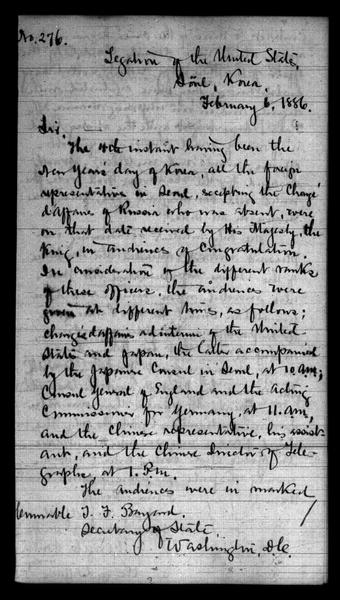 No. 276.
Legation of the United States,
Söul, Korea,
February 6, 1886.
Sir:
The 4th instant having been the
New Year's day of Korea, all the foreign
representatives in Seoul, excepting the Chargé
d'affaires of Russia who was absent, were
on that date received by His Majesty, the
King, in audiences of Congratulation.
In consideration of the different ranks
of these officers, the audiences were
given at different times, as follows;
chargés d'affaires ad interim of the United
States and Japan, the latter accompanied
by the Japanese Consul in Seoul, at 10 am;
Consul General of England and the Acting
Commissioner for Germany, at 11. am,
and the Chinese representative, his assist-
ant, and the Chinese Director of Tele-
graphs, at 1. P.m.
The audiences were in marked
Honorable T. F. Bayard.
Secretary of State,
Washington, D.C.